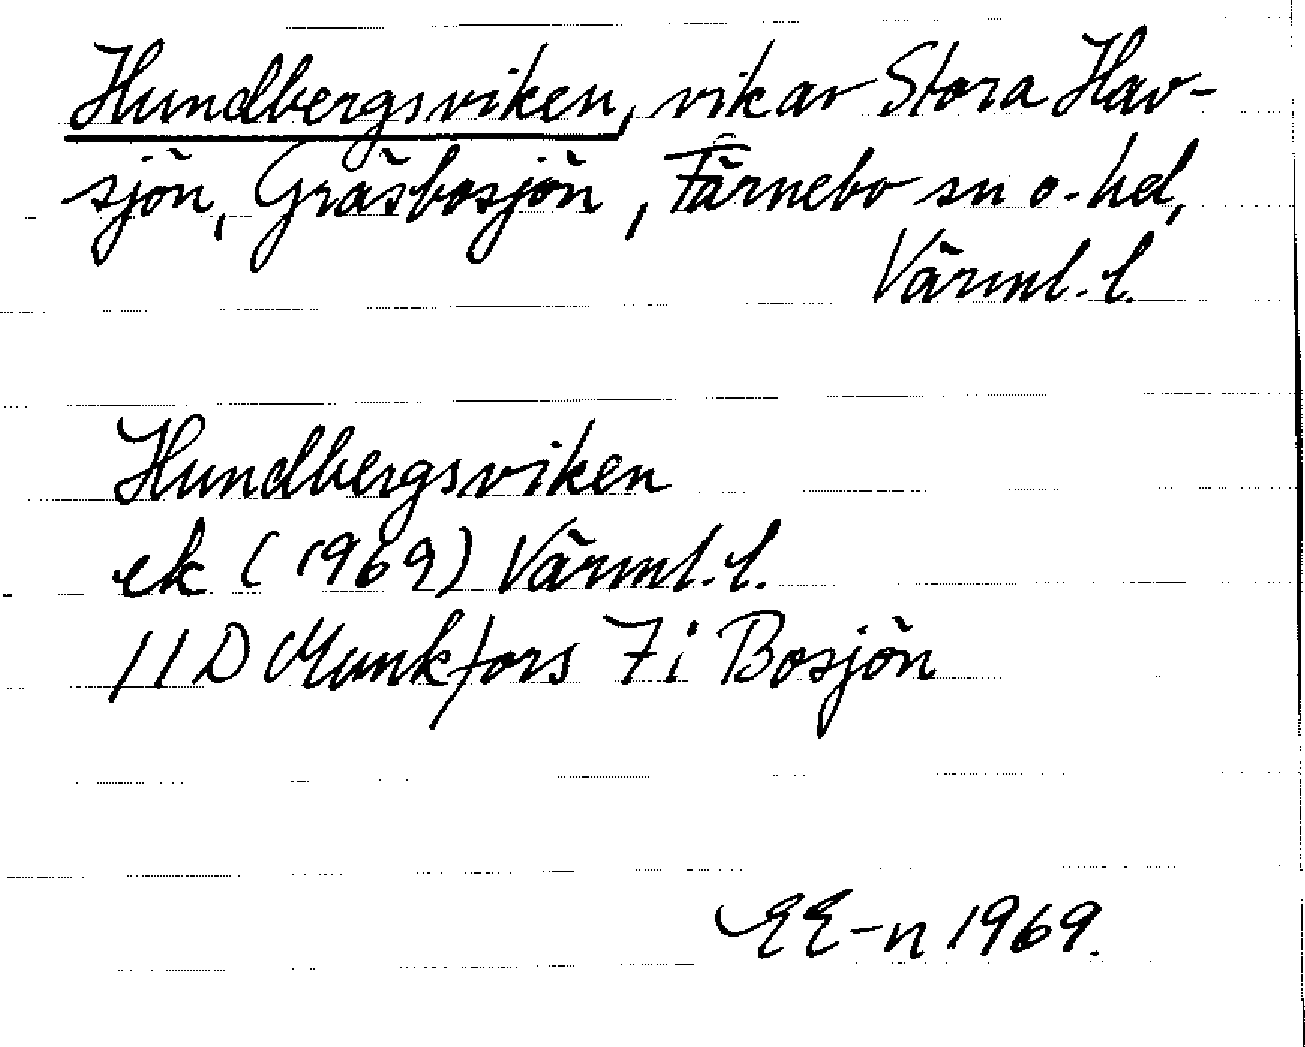 Hundbergsviken, vik av Stora Hav-
sjön, Gräsbosjön, Färnebo sn o. hd,
Värml. l.
Hundbergsviken
ek (1969) Värml. l.
11D Munkfors 7i Bosjön
EE-n 1969.